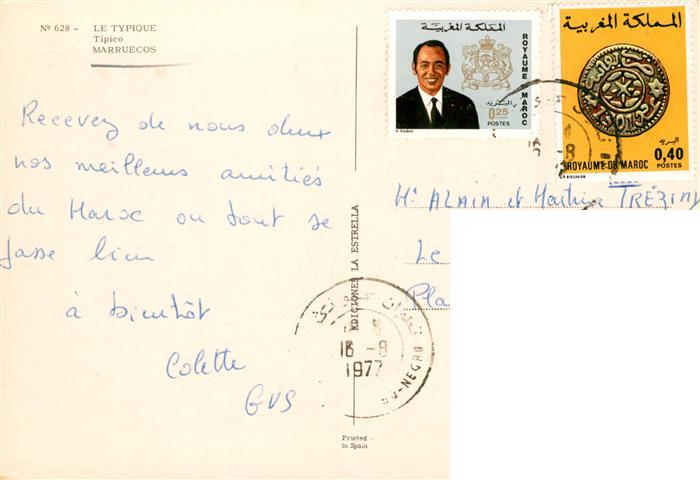 Nº 628 - LE TYPIQUE
Típico
MARRUECOS
Recevez de nous deux
nos meilleurs amitiés
du Maroc ou tout se
passe bien
à bientôt
Colette
GUS
EDICIONES LA ESTRELLA
Printed
in Spain
المملكة المغربية
ROYAUME MAROC
البريد
0,25
POSTES
المملكة المغربية
البريد
0,40
ROYAUME DU MAROC
POSTES
Mr ALAIN et Martine
Le
Pla
تطوان
18 -8
1977
-NEGRO